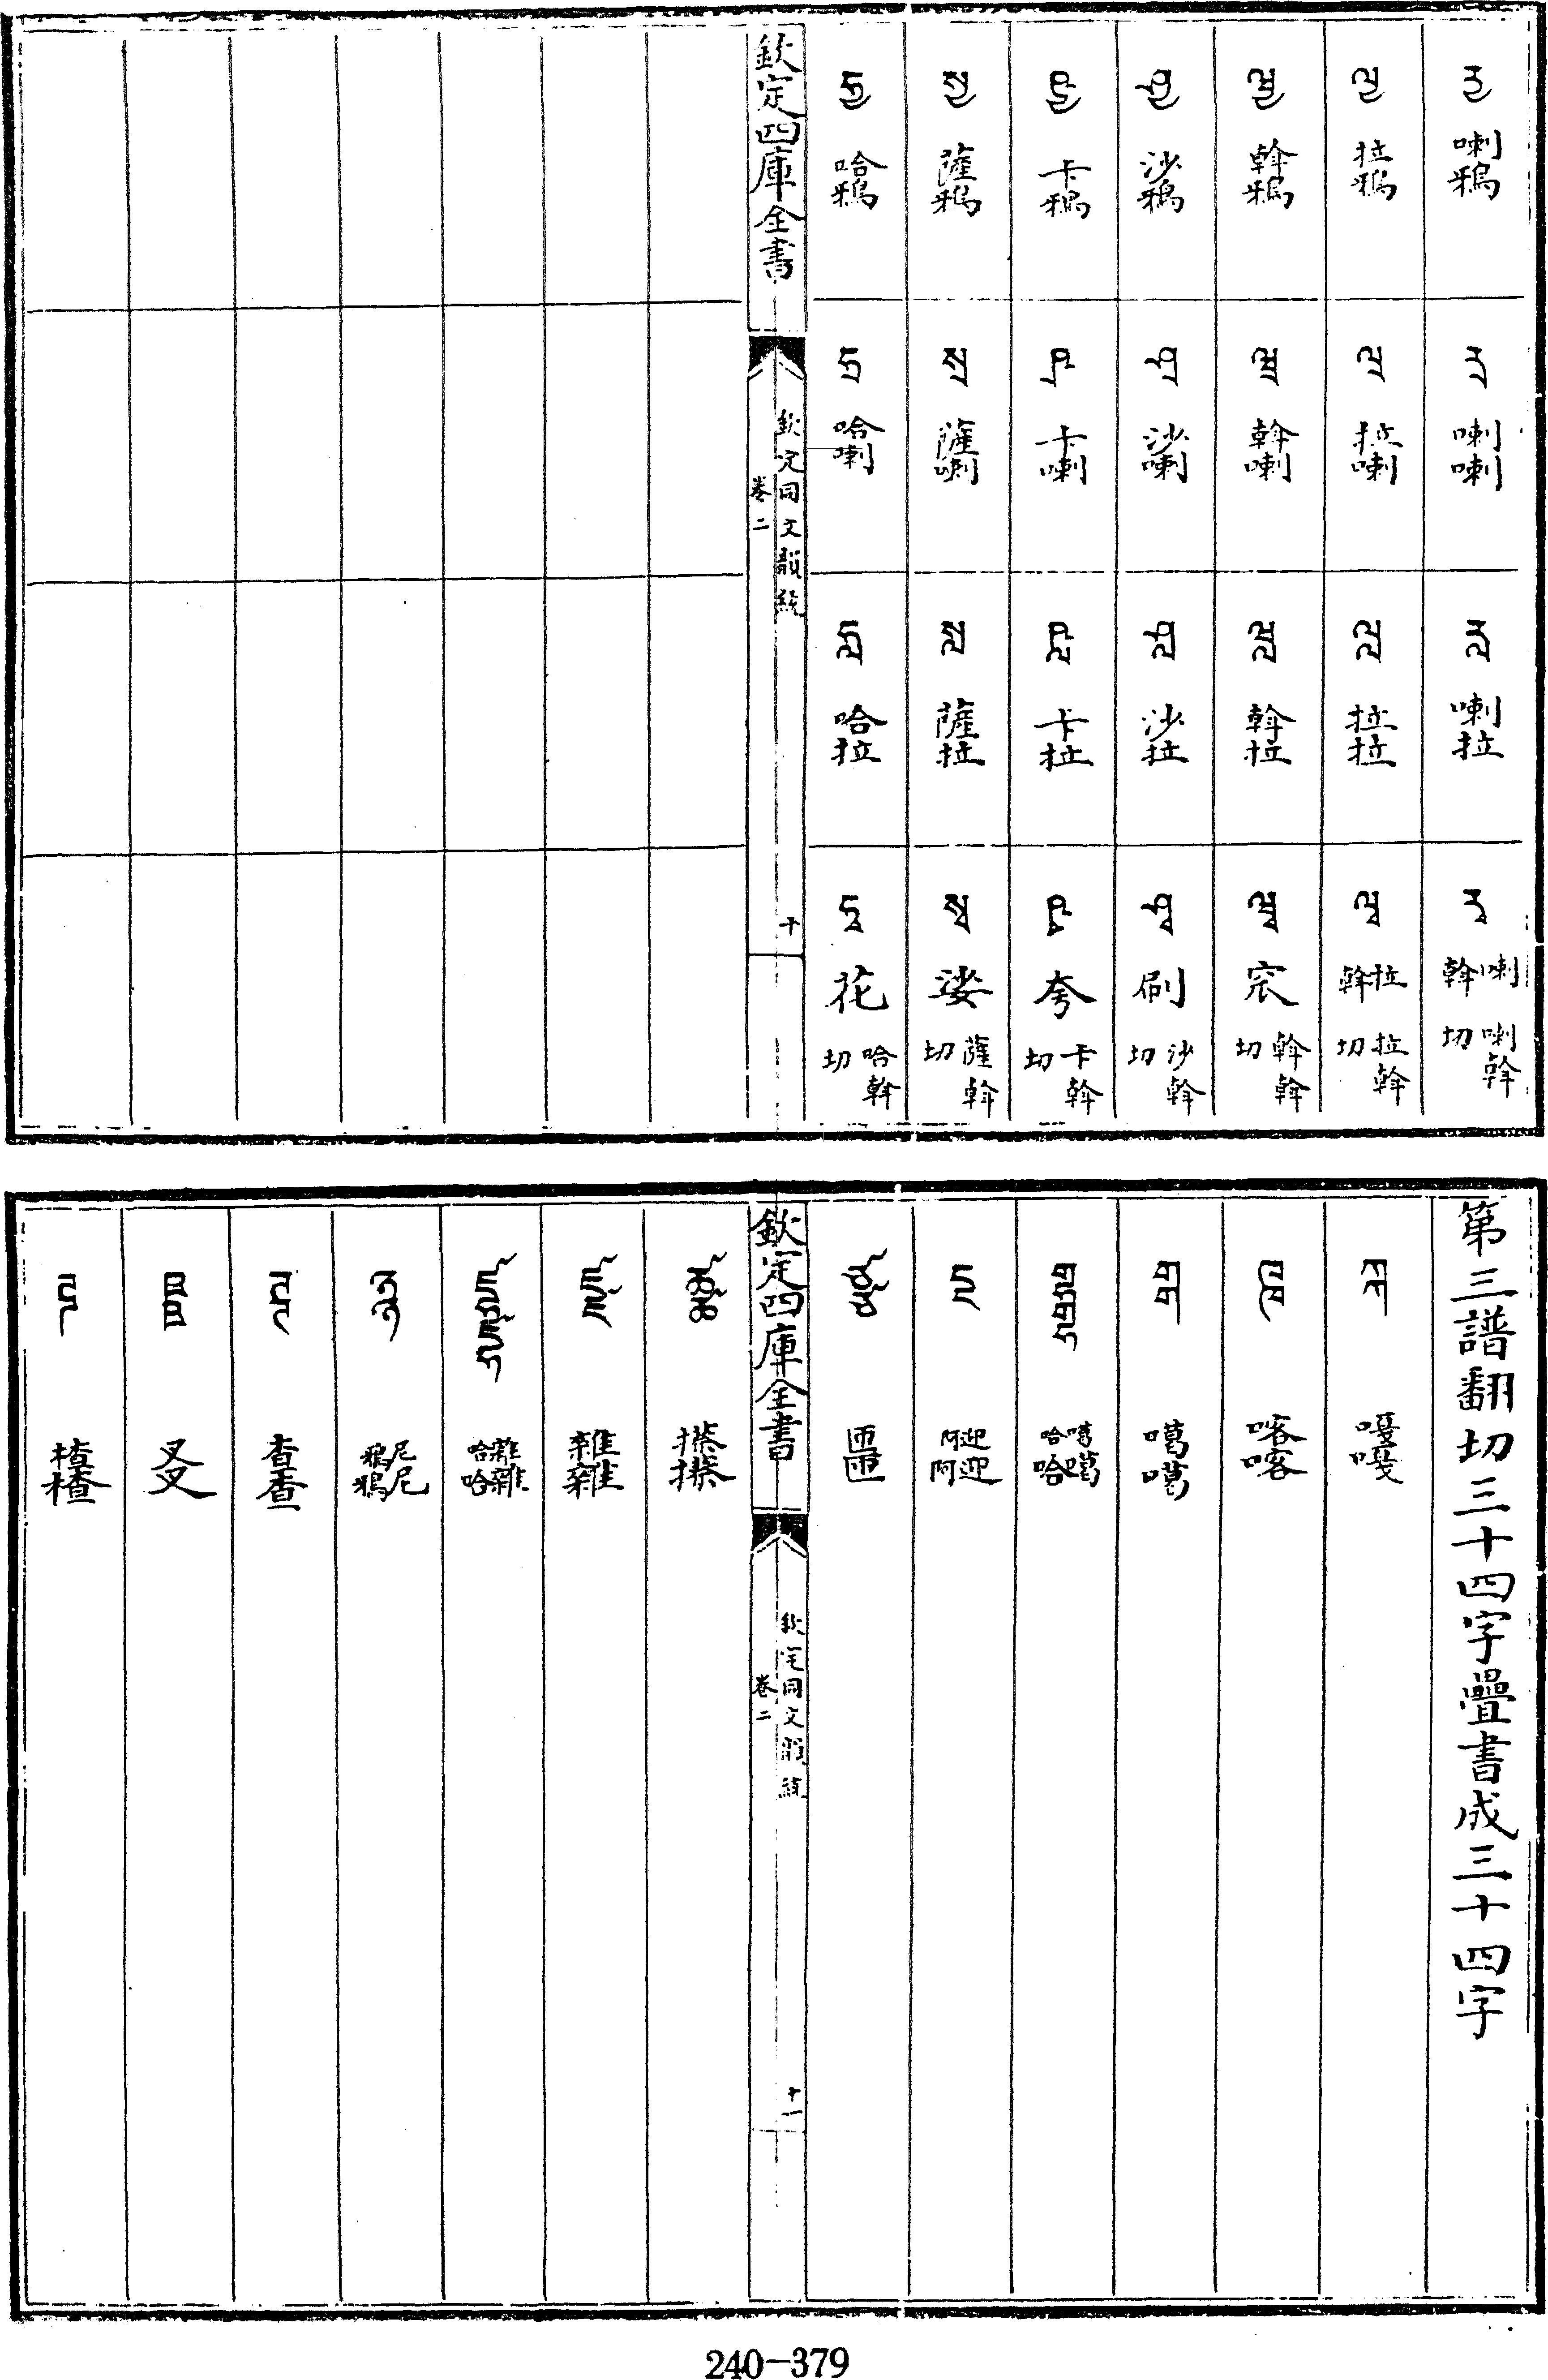 རྱ 喇鴉 རྲ 喇喇 རླ 喇拉 རྭ 喇斡 喇斡切
ལྱ 拉鴉 ལྲ 拉喇 ལླ 拉拉 ལྭ 拉斡 拉斡切
ཝྱ 斡鴉 ཝྲ 斡喇 ཝླ 斡拉 ཝྭ 窊 斡斡切
ཤྱ 沙鴉 ཤྲ 沙喇 ཤླ 沙拉 ཤྭ 刷 沙斡切
ཥྱ 卡鴉 ཥྲ 卡喇 ཥླ 卡拉 ཥྭ 夸 卡斡切
སྱ 薩鴉 སྲ 薩喇 སླ 薩拉 སྭ 娑 薩斡切
ཧྱ 哈鴉 ཧྲ 哈喇 ཧླ 哈拉 ཧྭ 花 哈斡切
欽定四庫全書
欽定同文韻統
卷二
十
第三譜翻切三十四字疊書成三十四字
ཀྐ 嘎嘎
ཁྑ 喀喀
གྒ 噶噶
གྷྒྷ 噶哈噶哈
ངྔ 迎阿迎阿
ཙྩ 匝匝
欽定四庫全書
欽定同文韻統
卷二
十一
ཚྪ 攃攃
ཛྫ 雜雜
ཛྷྫྷ 雜哈雜哈
ཉྙ 尼鴉尼鴉
ཊྚ 查查
ཋྛ 叉叉
ཌྜ 楂楂
240-379